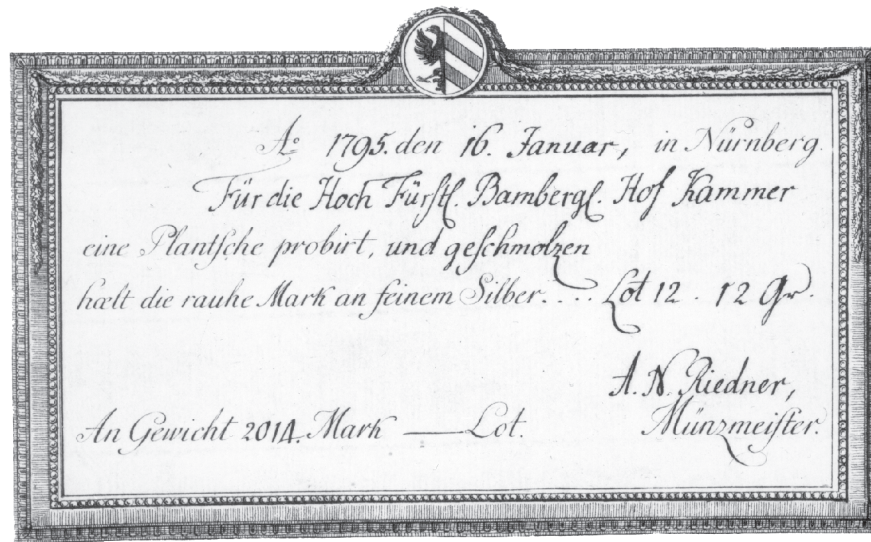 Ao 1795. den 16. Januar, in Nürnberg.
Für die Hoch Fürstl. Bambergl. Hof Kammer
eine Plantsche probirt, und geschmolzen
hælt die rauhe Mark an feinem Silber.... Lot 12 . 12 Gr.
A. N. Riedner,
An Gewicht 2014. Mark — Lot. Münzmeister.